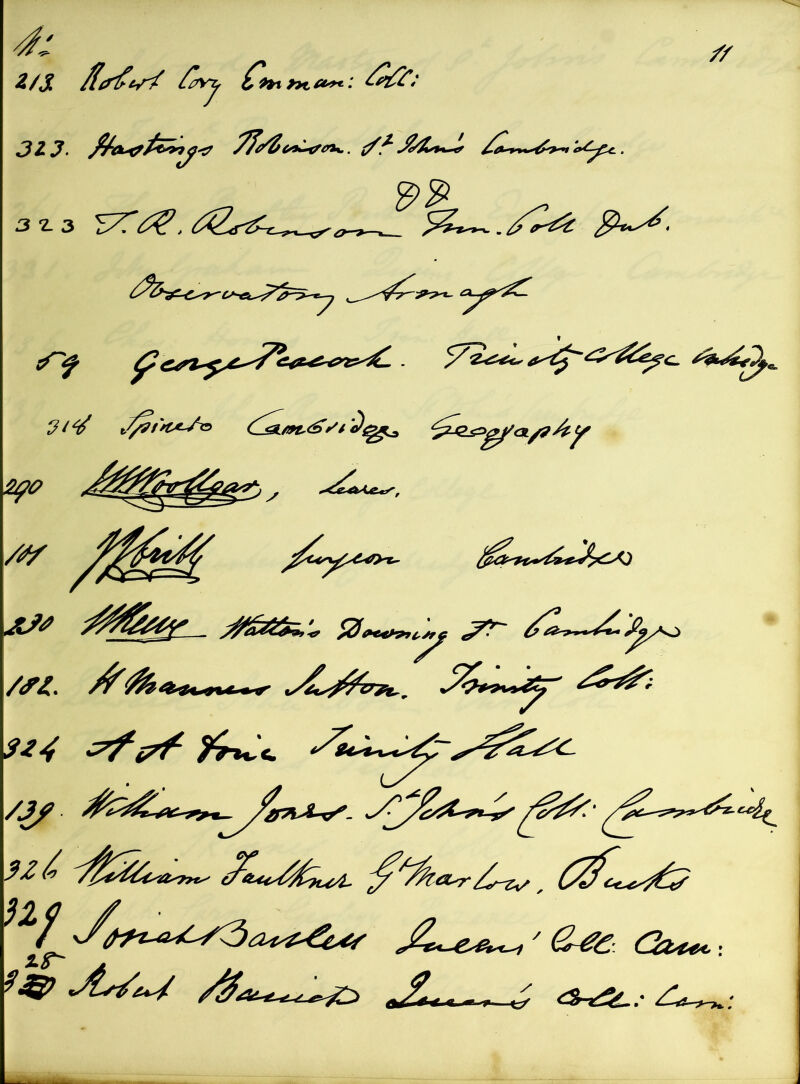 No. 11
213. Robert Cory Emman: Coll:
323. Hastings Robinson. St. John's Cambridge.
DD
323 T. R. Robinson Trin. Coll Dub.
Observatory Armagh
59 George Peacock. Trinity College Cambridge
318 Spineto Cambridge Geography
290 J.W. Woollgar, Lewes.
101 Surgeon Cambridge
230 W Reeve Watton's Downing St. Cambridge
182. H Manners Sutton. Trinity Coll:
324 A A Trinity Hall
139. William Jones. St. John's Coll: Cambridge
326 William Faulkner Gt Marlow, Bucks
329 Josiah Bartlett Queens' Coll: Cam:
328 Robert Queen's Coll: Cam: